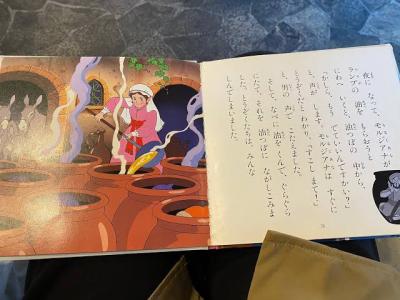 夜に なって、モルジアナが
ランプの 油を もらおうと
にわへ いくと、油つぼの 中から、
「かしら、もう でて いいんですかい？」
と、声が します。モルジアナは すぐに
とうぞくだと わかり、「すこし まて！」
と、男の 声で こたえました。
そして、なべに 油を くんで、ぐらぐら
にたて、それを 油つぼに ながしこみま
した。とうぞくたちは、みんな
しんでしまいました。